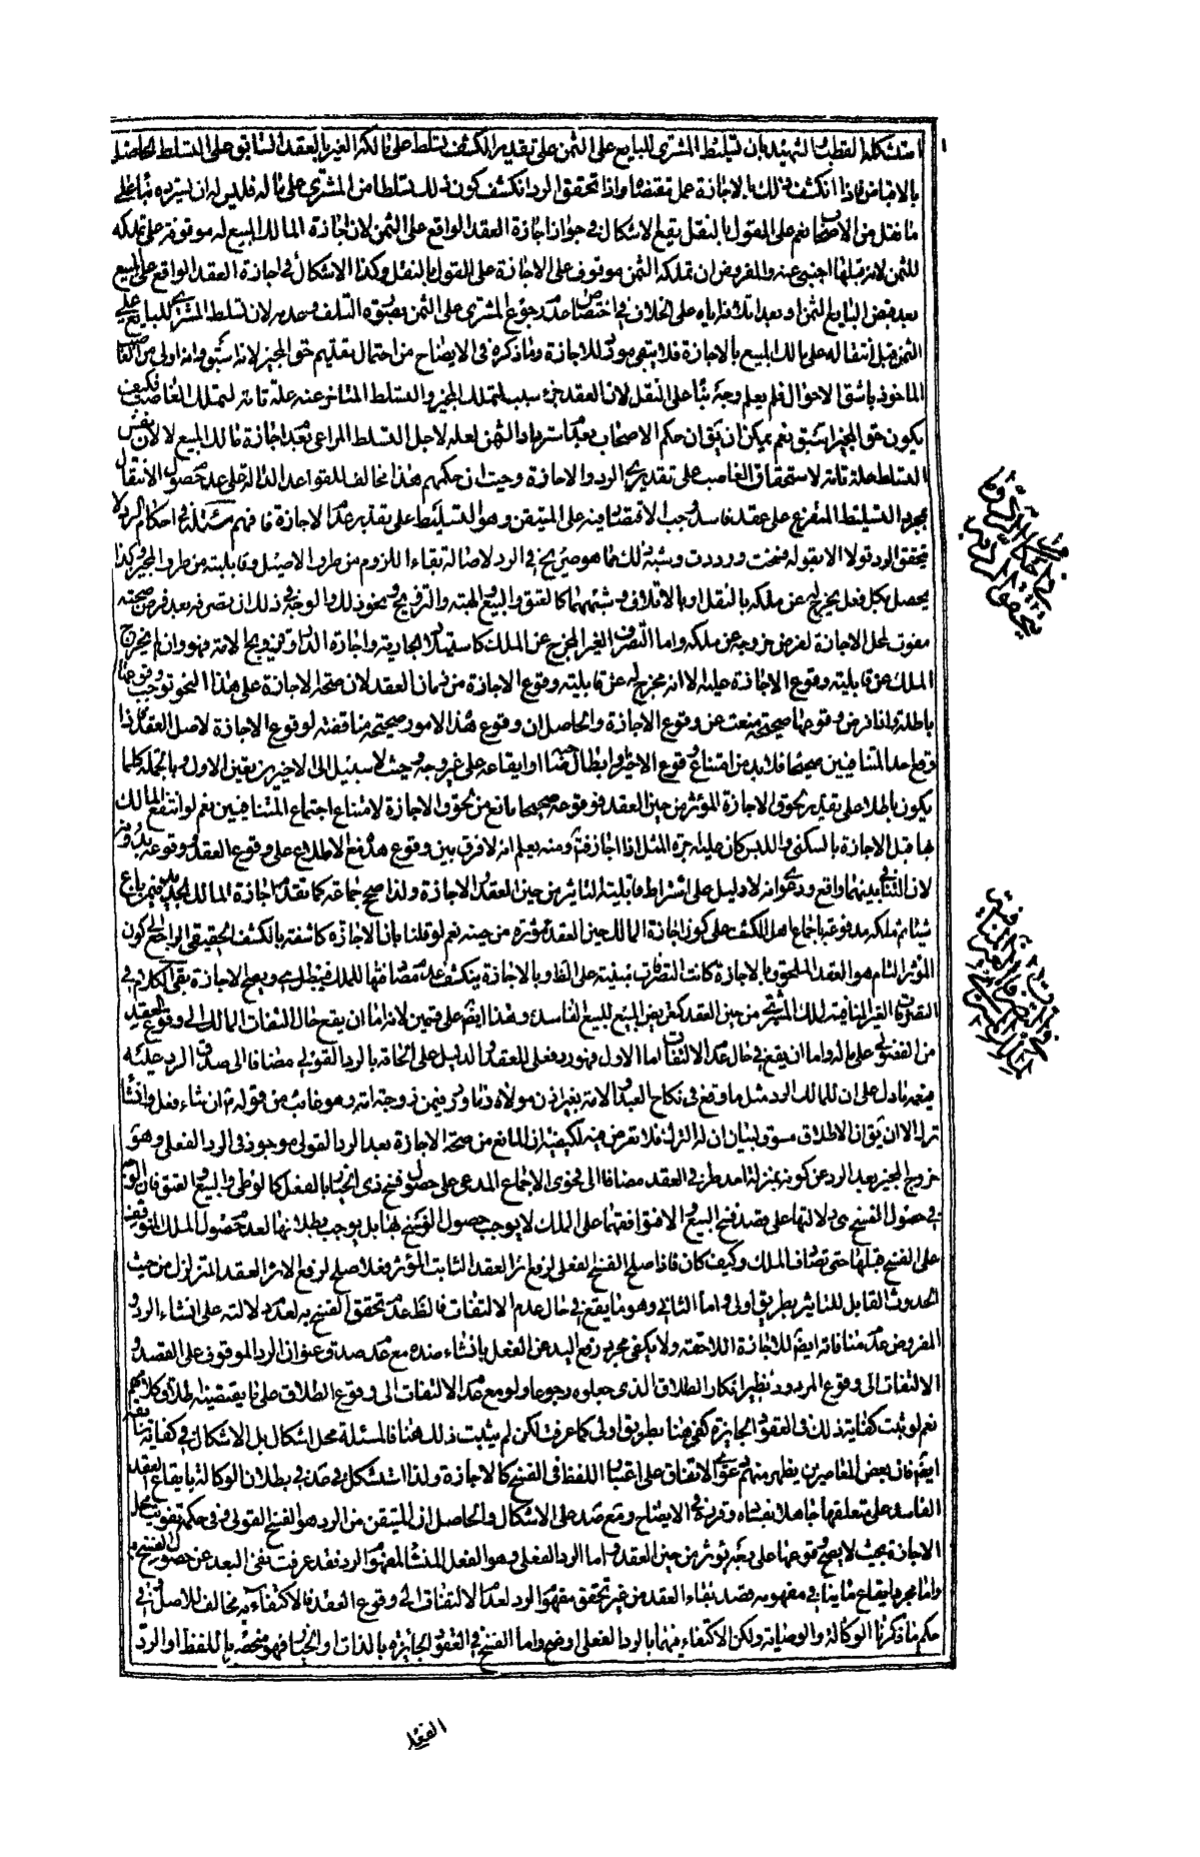 استشكله القطب الشهيد بان تسليط المشترى للبايع على الثمن على تقدير الكشف تسلط على مالكه الغير بالعقد السابق على التسلط الحاصل
بالاقباض فاذا انكشف ذلك بالاجازة عمل بمقتضاه واذا تحقق الرد انكشف كون ذلك تسلطا من المشترى على ماله فليس له ان يسترده بناء على
ما نقل من الاصحاب نعم على القول بالنقل يقع الاشكال في جواز اجازة العقد الواقع على الثمن لان اجازة المالك المبيع له موقوفة على تملكه
للثمن لانه قبلها اجنبى عنه والمفروض ان تملكه الثمن موقوف على الاجازة على القول بالنقل وكذا الاشكال في اجازة العقد الواقع على المبيع
بعد قبض البايع الثمن او بعد اتلافه اياه على الخلاف في اختصاص عدم رجوع المشترى على الثمن بصورة التلف وعدمه لان تسلط المشترى للبايع على
الثمن قبل انتقاله على مالك المبيع بالاجازة فلا يبقى مورد للاجازة وما ذكره فى الايضاح من احتمال تقديم حق المجيز لانه اسبق وانه اولى من الغاصب
الماخوذ باشق الاحوال فلم يعلم وجهه بناء على النقل لان العقد جزء سبب لتملك المجيز والتسلط المتاخر عنه علة تامة لتملك الغاصب فكيف
يكون حق المجيز اسبق نعم يمكن ان يق ان حكم الاصحاب بعدم استرداد الثمن لعله لاجل التسلط المراعى بعدم اجازة مالك المبيع لا لان نفس
التسلط علة تامة لاستحقاق الغاصب على تقديرى الرد والاجازة وحيث ان حكمهم هذا مخالف للقواعد الدالة على عدم حصول الانتقال
بمجرد التسليط المتفرع على عقد فاسد وجب الاقتصار فيه على المتيقن وهو التسليط على تقدير عدم الاجازة فافهم مسئلة فى احكام الرد لا
يتحقق الرد قولا الا بقوله فسخت ورددت وشبه ذلك مما هو صريح في الرد لاصالة بقاء اللزوم من طرف الاصيل وقابليته من طرف المجيز وكذا
يحصل بكل فعل مخرج له عن ملكه بالنقل او بالاتلاف وشبههما كالعتق والبيع والهبة والتزويج ونحو ذلك والوجه في ذلك ان تصرفه بعد فرض صحته
مفوت لمحل الاجازة لفرض خروجه عن ملكه واما التصرف الغير المخرج عن الملك كاستيلاد الجارية واجارة الدابة وتزويج الامة فهو وان لم يخرج
الملك عن قابليته وقوع الاجازة عليه الا انه مخرج له عن قابليته وقوع الاجازة من زمان العقد لان صحة الاجازة على هذا النحو توجب وقوعها
باطلة واذا فرض وقوعها صحيحة منعت عن وقوع الاجازة والحاصل ان وقوع هذه الامور صحيحة مناقضة لوقوع الاجازة لاصل العقد فاذا
وقع احد المتنافيين صحيحا فلا بد من امتناع وقوع الاخر او ابطال صاحبه او ايقاعه على غير وجهه وحيث لا سبيل الى الاخيرين تعين الاول وبالجملة كلما
يكون باطلا على تقدير لحوق الاجازة المؤثرة من حين العقد فوقوعه صحيحا مانع من لحوق الاجازة لامتناع اجتماع المتنافيين نعم لو انتفع المالك
بها قبل الاجازة بالسكنى واللبس كان عليه اجرة المثل اذا اجاز فت ومنه يعلم انه لا فرق بين وقوع هذه مع الاطلاع على وقوع العقد ووقوعه بدونه
لان التنافي بينهما واقع ودعوى انه لا دليل على اشتراط قابلية التاثير من حين العقد في الاجازة ولذا صح جماعة كما تقدم اجازة المالك الجديد فيمن باع
شيئا ثم ملكه مدفوعة باجماع اهل الكشف على كون اجازة المالك حين العقد مؤثرة من حينه نعم لو قلنا بان الاجازة كاشفة بالكشف الحقيقى الراجع الى كون
المؤثر التام هو العقد الملحوق بالاجازة كانت التصرفات مبنية على الظ وبالاجازة ينكشف عدم مصادفتها للملك فتبطل هى وتصح الاجازة بقى الكلام في
التصرفات الغير المنافية لملك المشترى من حين العقد كتعريض المبيع للبيع الفاسد وهذا ايضا على قسمين لانه اما ان يقع حال التفات المالك الى وقوع العقد
من الفضولى على ماله واما ان يقع في حال عدم الالتفات اما الاول فهو رد فعلى للعقد والدليل على الحاقه بالرد القولى مضافا الى صدق الرد عليه
فيعمه ما دل على ان للمالك الرد مثل ما وقع فى نكاح العبد والامة بغير اذن مولاه وما ورد فيمن زوجته امه وهو غائب من قوله ع ان شاء فعل وان شاء
ترك الا ان يق ان الاطلاق مسوق لبيان ان له الترك فلا تعرض فيه لكيفيته ان المانع من صحة الاجازة بعد الرد القولى موجود فى الرد الفعلى وهو
خروج المجيز بعد الرد عن كونه بمنزلة احد طرفى العقد مضافا الى فحوى الاجماع المدعى على حصول فسخ ذى الخيار بالفعل كالوطى والبيع والعتق فان الوجه
في حصول الفسخ هى دلالتها على قصد فسخ البيع والا فتوقفها على الملك لا يوجب حصول الفسخ بها بل يوجب بطلانها لعدم حصول الملك المتوقف
على الفسخ قبلها حتى تصادف الملك وكيف كان فاذا صلح الفسخ الفعلى لرفع اثر العقد الثابت المؤثر فعلا صلح لرفع اثر العقد المتزلزل من حيث
الحدوث القابل للتاثير بطريق اولى واما الثانى وهو ما يقع في حال عدم الالتفات فالظ عدم تحقق الفسخ به لعدم دلالته على انشاء الرد و
المفروض عدم منافاته ايضا للاجازة اللاحقة ولا يكفى مجرد رفع اليد عن الفعل بانشاء ضده مع عدم صدق عنوان الرد الموقوف على القصد و
الالتفات الى وقوع المردود نظير انكار الطلاق الذى جعلوه رجوعا ولو مع عدم الالتفات الى وقوع الطلاق على ما يقتضيه اطلاق كلامهم
نعم لو ثبت كفاية ذلك فى العقود الجايزة كفى هنا بطريق اولى كما عرفت لكن لم يثبت ذلك هنا فالمسئلة محل اشكال بل الاشكال في كفاية سابقه
ايضا فان بعض المعاصرين يظهر منهم دعوى الاتفاق على اعتبار اللفظ فى الفسخ كالاجازة ولذا استشكل في عد في بطلان الوكالة بايقاع العقد
الفاسد على متعلقها جاهلا بفساده وقرره في الايضاح ومع صد على الاشكال والحاصل ان المتيقن من الرد هو الفسخ القولى وفى حكمه تفويت محل
الاجازة بحيث لا يصح وقوعها على وجه يؤثر من حين العقد واما الرد الفعلى وهو الفعل المنشا لمفهوم الرد فقد عرفت نفى البعد عن حصول الفسخ به
واما مجرد ايقاع ما ينافي مفهومه قصد بقاء العقد من غير تحقق مفهوم الرد لعدم الالتفات الى وقوع العقد فالاكتفاء به مخالف للاصل وفي
حكم ما ذكرنا الوكالة والوصاية ولكن الاكتفاء فيهما بالرد الفعلى اوضح واما الفسخ في العقود الجايزة بالذات او الخيار فهو منحصر باللفظ او الرد
الفعلى